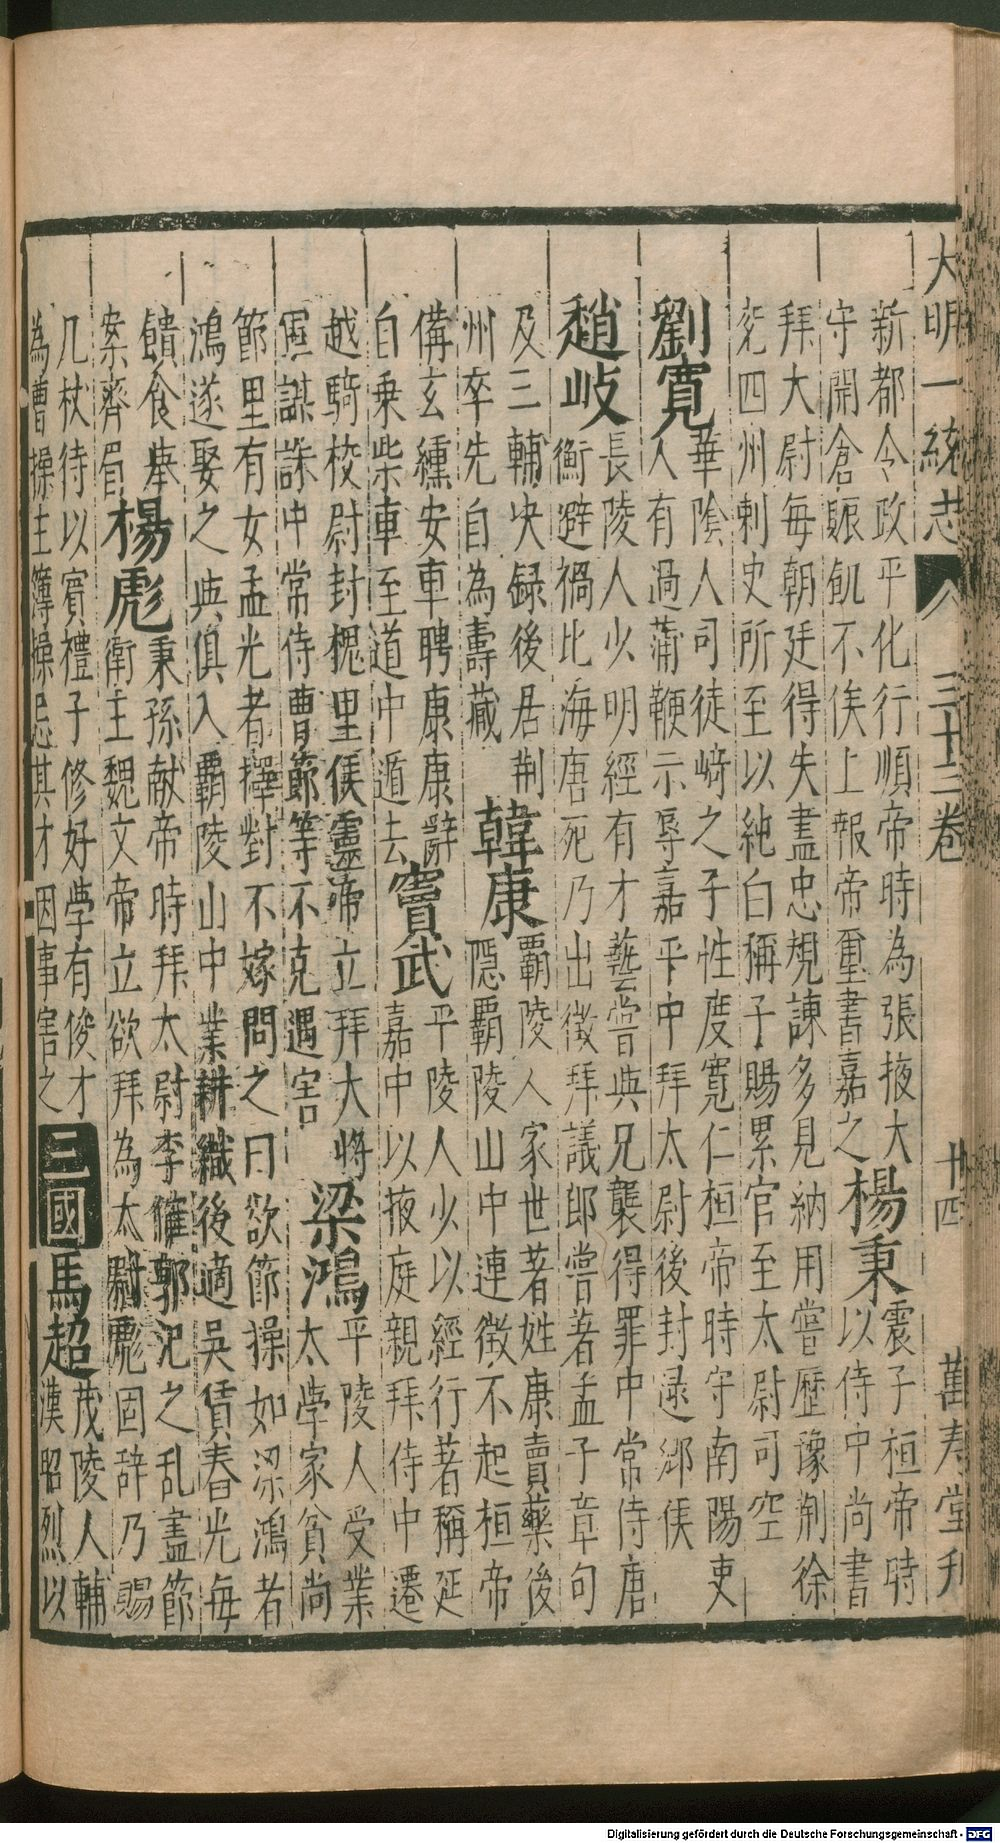 大明一統志 三十三卷 廿四 萬寿堂刊
新都令政平化行順帝時為張掖大
守開倉賑飢不俟上報帝璽書嘉之
楊秉
震子桓帝時
以侍中尚書
拜大尉每朝廷得失盡忠規諫多見納用嘗歷豫荆徐
兖四州刺史所至以純白稱子賜累官至太尉司空
劉寬
華陰人司徒﨑之子性度寬仁桓帝時守南陽吏
人有過蒲鞭示辱嘉平中拜太尉後封逯鄉侯
趙岐
長陵人少明經有才藝嘗與兄襲得罪中常侍唐
衡避禍比海唐死乃出徵拜議郎嘗著孟子章句
及三輔决録後居荆
州卒先自為壽藏
韓康
覇陵人家世著姓康賣藥後
隱覇陵山中連徵不起桓帝
備玄纁安車聘康康辭
自乗柴車至道中遁去
竇武
平陵人少以經行著稱延
嘉中以掖庭親拜侍中遷
越騎校尉封槐里侯靈帝立拜大將
軍謀誅中常侍曹節等不克遇害
梁鴻
平陵人受業
太學家貧尚
節里有女孟光者擇對不嫁問之曰欲節操如梁鴻者
鴻遂娶之與俱入覇陵山中業耕織後適吳賃舂光每
饋食舉
案齊眉
楊彪
秉孫献帝時拜太尉李傕郭汜之乱盡節
衛主魏文帝立欲拜為太尉彪固辞乃賜
几杖待以賓禮子修好學有俊才
為曹操主簿操忌其才因事害之
三國
馬超
茂陵人輔
漢昭烈以
Digitalisierung gefördert durch die Deutsche Forschungsgemeinschaft - DFG